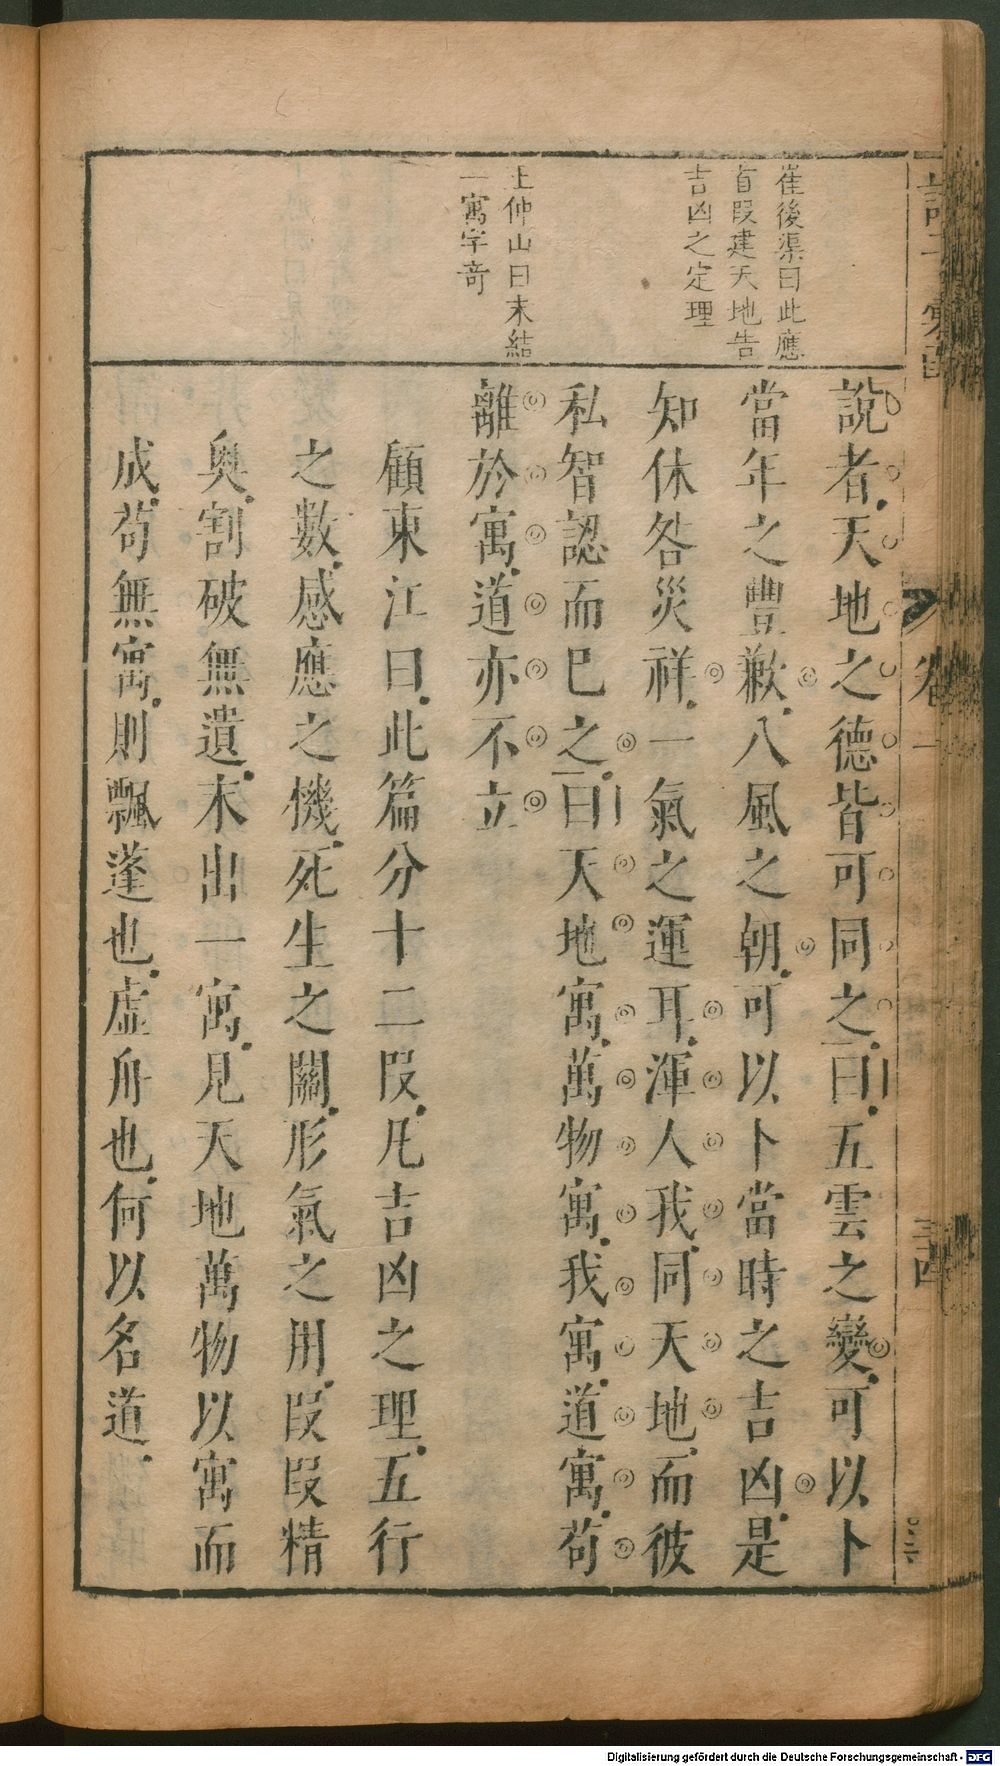 崔後渠曰此應
首段建天地告
吉凶之定理
王仲山曰末結
一寓字奇
說者天地之德皆可同之曰五雲之變可以卜
當年之豐歉八風之朝可以卜當時之吉凶是
知休咎災祥一氣之運耳渾人我同天地而彼
私智認而巳之曰天地寓萬物寓我寓道寓苟
離於寓道亦不立
顧東江曰此篇分十二段凡吉凶之理五行
之數感應之機死生之關形氣之用段段精
奧割破無遺末出一寓見天地萬物以寓而
成苟無寓則飄蓬也虛舟也何以名道
卷一
三四
Digitalisierung gefördert durch die Deutsche Forschungsgemeinschaft - DFG